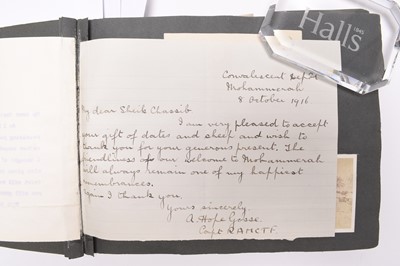 Halls
1845
Convalescent Depôt
Mohammerah
8 October 1916
My dear Sheik Chassib
I am very pleased to accept
your gift of dates and sheep and wish to
thank you for your generous present. The
friendliness of our welcome to Mohammerah
will always remain one of my happiest
remembrances.
I thank you
Yours sincerely
A. Hope Gosse.
Capt. RAMCTF